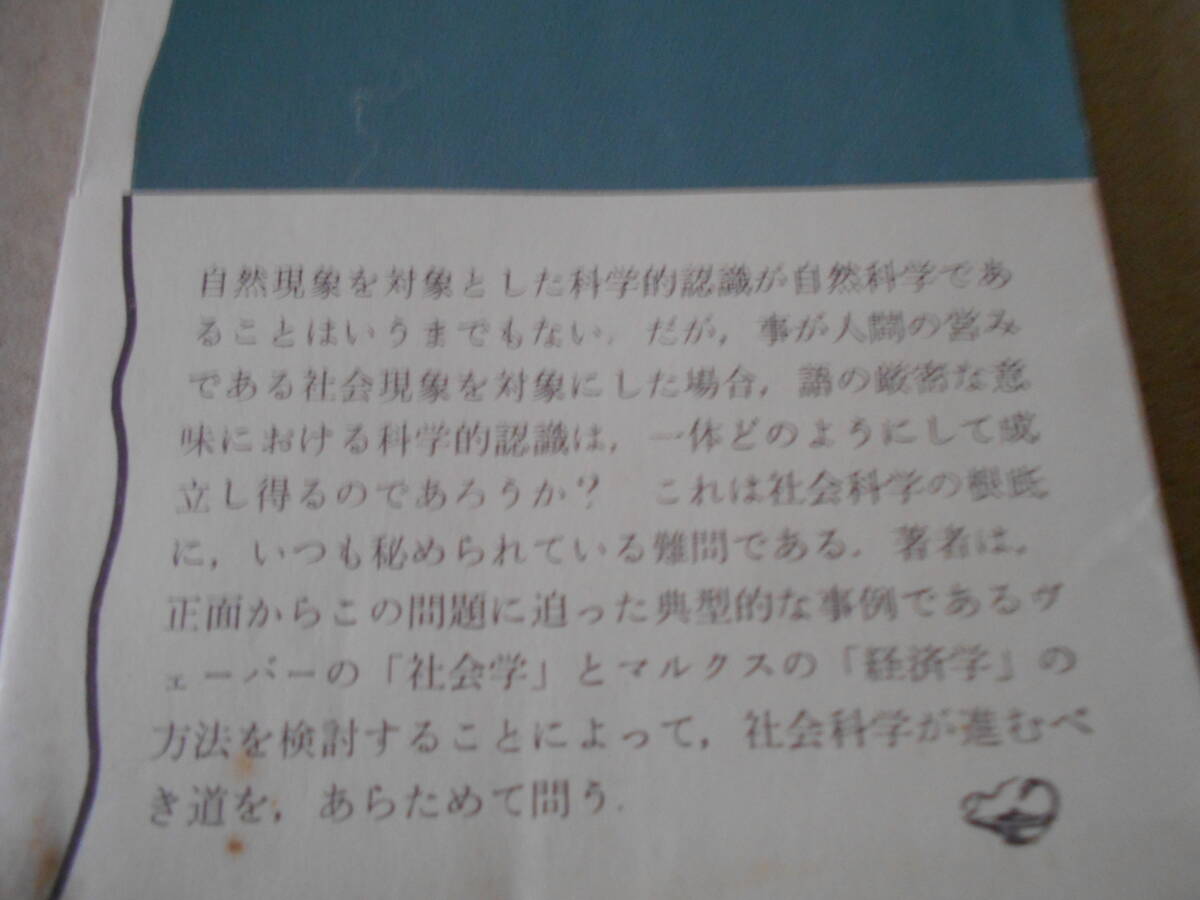 自然現象を対象とした科学的認識が自然科学であ
ることはいうまでもない．だが，事が人間の営み
である社会現象を対象にした場合，語の厳密な意
味における科学的認識は，一体どのようにして成
立し得るのであろうか？　これは社会科学の根底
に，いつも秘められている難問である．著者は，
正面からこの問題に迫った典型的な事例であるヴ
ェーバーの「社会学」とマルクスの「経済学」の
方法を検討することによって，社会科学が進むべ
き道を，あらためて問う．